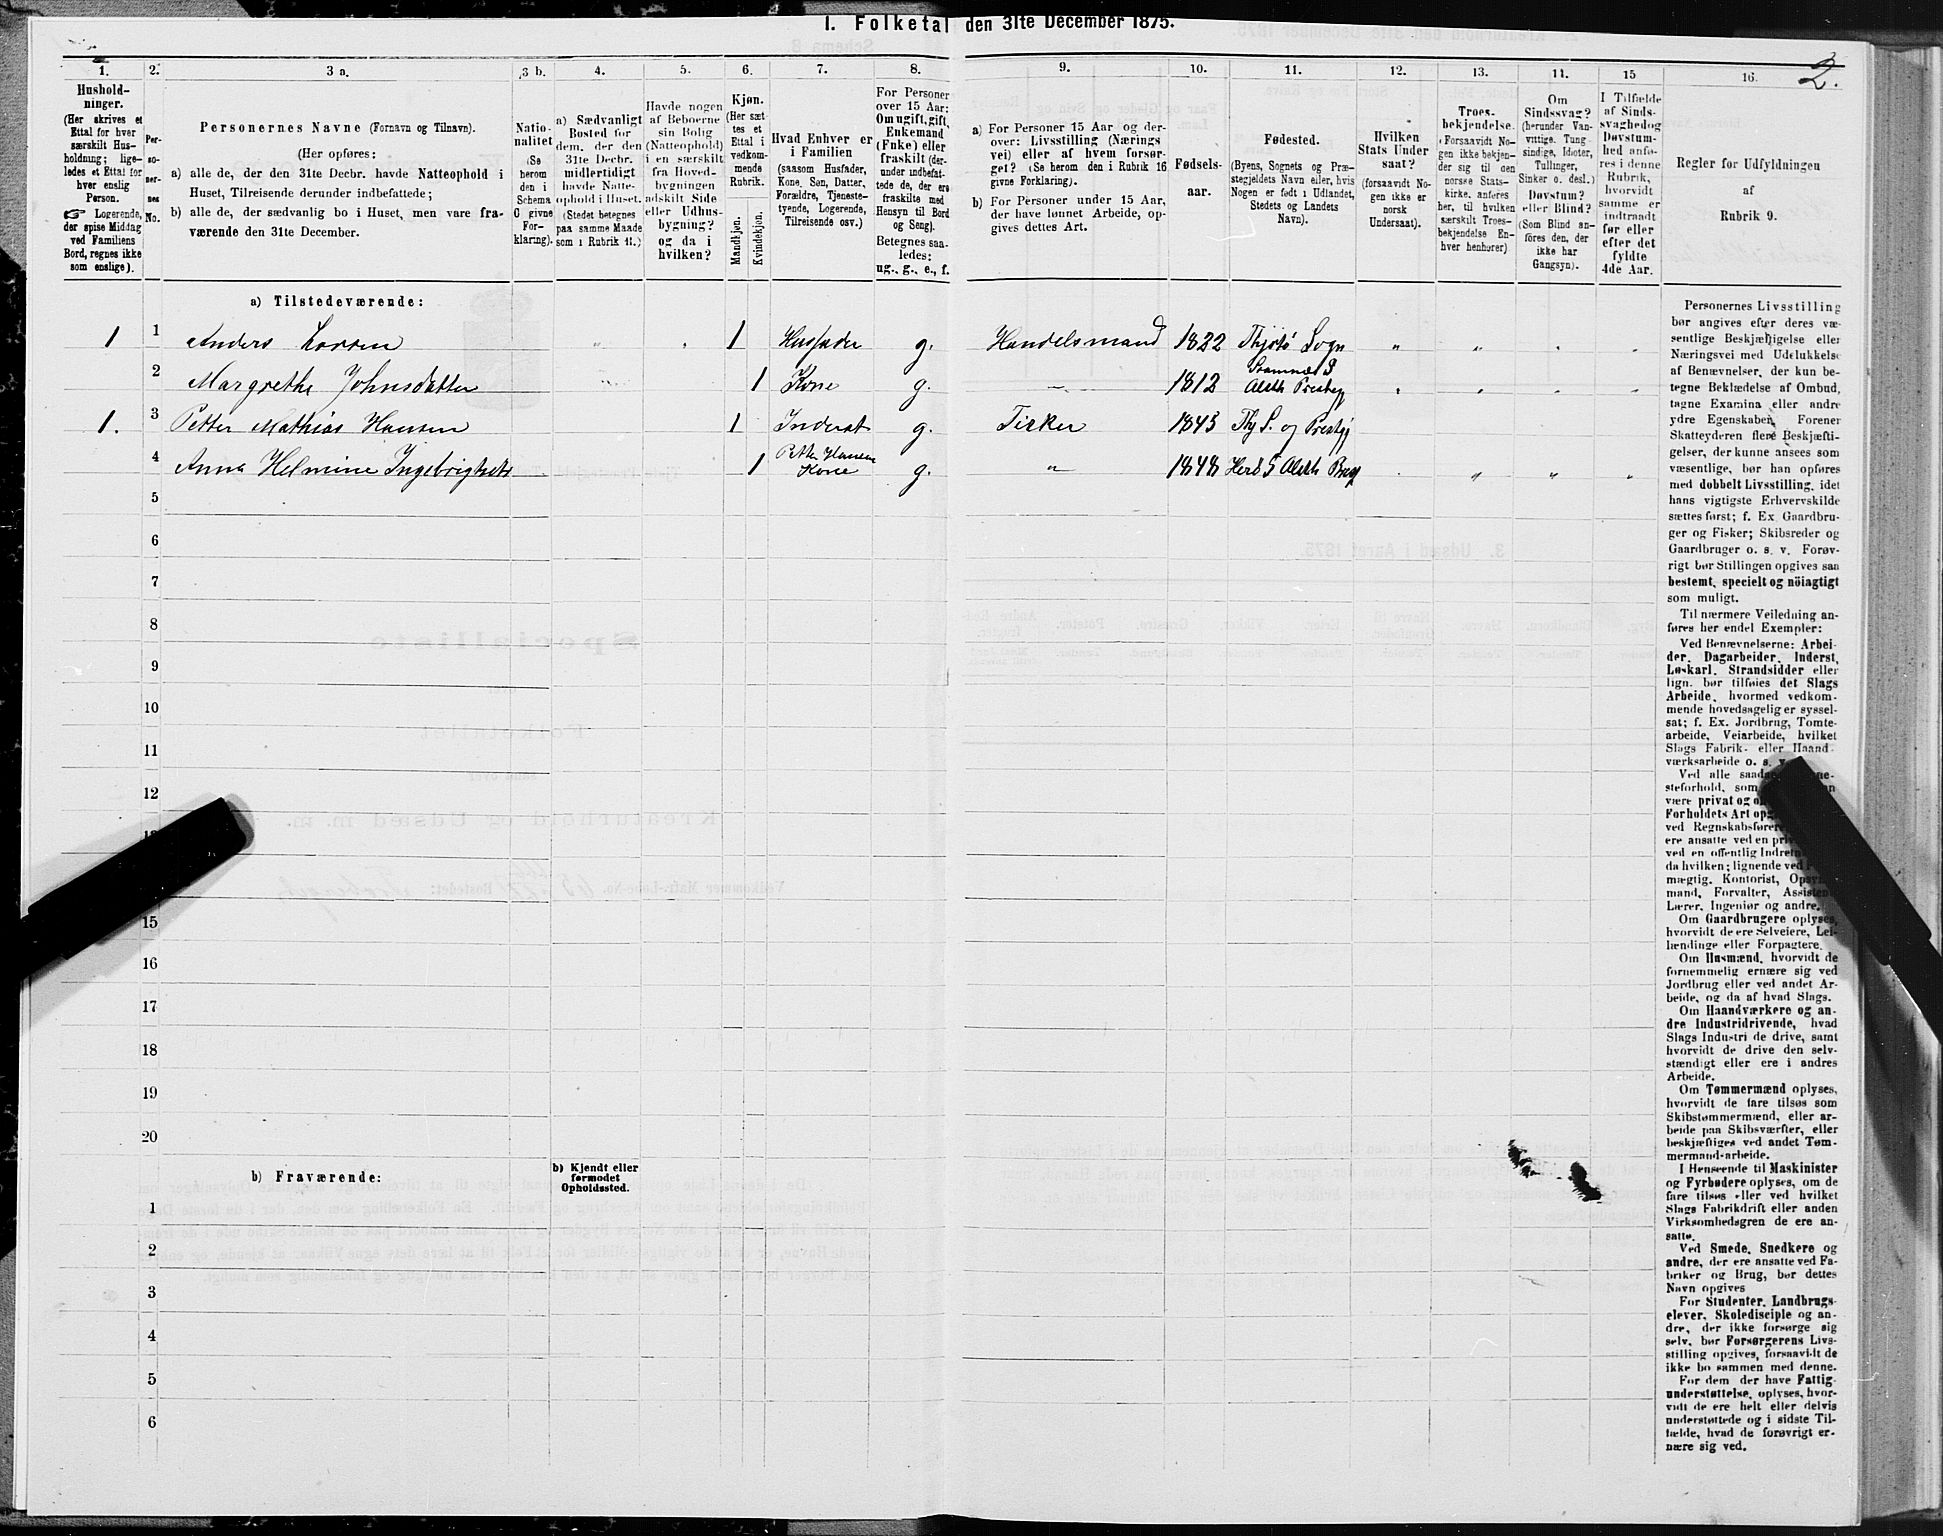 I. Folketal den 31te December 1875.
2.
1.
2.
3 a.
3 b.
4.
5.
6.
7.
8.
9.
10.
11.
12.
13.
14.
15
16.
Hushold-
ninger.
(Her skrives et
Ettal for hver
særskilt Hus-
holdning; lige-
ledes et Ettal for
hver enslig
Person.
☞ Logerende,
der spise Middag
ved Familiens
Bord, regnes ikke
som enslige).
Per-
so-
ner-
nes
No.
Personernes Navne (Fornavn og Tilnavn).
(Her opføres:
a) alle de, der den 31te Decbr. havde Natteophold i
Huset, Tilreisende derunder indbefattede;
b) alle de, der sædvanlig bo i Huset, men vare fra-
værende den 31te December.
Natio-
nalitet
(Se
herom
den i
Schema
C givne
For-
klaring).
a) Sædvanligt
Bosted for
dem, der den
31te Decbr.
midlertidigt
havde Natte-
ophold i Huset.
(Stedet betegnes
paa samme Maade
som i Rubrik 11.)
Havde nogen
af Beboerne
sin Bolig
(Natteophold)
i en særskilt
fra Hoved-
bygningen
adskilt Side
eller Udhus-
bygning?
og da i
hvilken?
Kjøn.
(Her sæt-
tes et
Ettal i
vedkom-
mende
Rubrik.
Mandkjøn.
Kvindekjøn.
Hvad Enhver er
i Familien
(saasom Husfader,
Kone, Søn, Datter,
Forældre, Tjeneste-
tyende, Logerende,
Tilreisende osv.)
For Personer
over 15 Aar:
Om ugift, gift,
Enkemand
(Enke) eller
fraskilt (der-
under indbefat-
tede de, der ere
fraskilte med
Hensyn til Bord
og Seng).
Betegnes saa-
ledes:
ug., g., e., f.
a) For Personer 15 Aar og der-
over: Livsstilling (Nærings
vei) eller af hvem forsør-
get? (Se herom den i Rubrik 16
givne Forklaring).
b) For Personer under 15 Aar,
der have lønnet Arbeide, op-
gives dettes Art.
Fødsels-
aar.
Fødested.
(Byens, Sognets og Præ-
stegjeldets Navn eller, hvis
Nogen er født i Udlandet,
Stedets og Landets
Navn).
Hvilken
Stats Under
saat?
(forsaavidt No-
gen ikke er
norsk
Undersaat).
Troes-
bekjendelse.
(Forsaavidt No-
gen ikke bekjen-
der sig til den
norske Stats-
kirke, anføres
her, til hvilken
særskilt Troes-
bekjendelse En-
hver henhører)
Om
Sindssvag?
(herunder Van-
vittige, Tung-
sindige, Idioter,
Tullinger,
Sinker o. desl.)
Døvstum?
eller Blind?
(Som Blind an-
føres den, der
ikke har
Gangsyn).
I Tilfælde
af Sinds-
svaghed og
Døvstum-
hed anfø-
res i denne
Rubrik,
hvorvidt
samme er
indtraadt
før eller
efter det
fyldte
4de Aar.
Regler for Udfyldningen
af
Rubrik 9.
a) Tilstedeværende:
1 1 Anders Larsen " " 1 Husfader g. Handelsmand 1822 Thjøtø Sogn " " " "
2 Margrethe Johnsdatter 1 Kone g. — 1812 Stamnæs S Alsth Presteg " " " "
1. 3 Petter Mathias Hansen 1 Inderst g. Fisker 1843 Thj S. og Prestgj
4 Anna Helmine Ingebrigtsdt 1 Petter Hansen Kone g. " 1848 Herø S Alsth Preg " " " "
5
6
7
8
9
10
11
12
13
15
16
17
18
19
20
b) Fraværende:
b) Kjendt eller
formodet
Opholdssted.
1
2
3
4
5
6
Personernes Livsstilling
bør angives efter deres væ-
sentlige Beskjæftigelse eller
Næringsvei med Udelukkelse
af Benævnelser, der kun be-
tegne Beklædelse af Ombud,
tagne Examina eller andre
ydre Egenskaber. Forener
Skatteyderen flere Beskjæfti-
gelser, der kunne ansees som
væsentlige, bør han opføres
med dobbelt Livsstilling, idet
hans vigtigste Erhvervskilde
sættes først; f. Ex. Gaardbru-
ger og Fisker; Skibsreder og
Gaardbruger o. s. v. Forøv-
rigt bør Stillingen opgives saa
bestemt, specielt og nöiagtigt
som muligt.
Til nærmere Veiledning an-
føres her endel Exempler:
Ved Benævnelserne: Arbei-
der, Dagarbeider, Inderst,
Løskarl, Strandsidder eller
lign. bør tilføies det Slags
Arbeide, hvormed vedkom-
mende hovedsagelig er syssel-
sat; f. Ex. Jordbrug, Tomte-
arbeide, Veiarbeide, hvilket
Slags Fabrik- eller Haand-
værksarbeide o. s. v.
Ved alle
steforhold, som
være privat og
Forholdets Art
ved Regnskabsfører
ere ansatte ved en
ved en offentlig
da hvilken; lignende ved
mægtig, Kontorist,
mand, Forvalter,
Lærer, Ingeniør og andre.
Om Gaardbrugere oplyses,
hvorvidt de ere Selveiere, Lei-
lændinge eller Forpagtere.
Om Husmænd, hvorvidt de
fornemmelig ernære sig ved
Jordbrug eller ved andet Ar-
beide, og da af hvad Slags.
Om Haandværkere og an-
dre Industridrivende, hvad
Slags Industri de drive, samt
hvorvidt de drive den selv-
stændigt eller ere i andres
Arbeide.
Om Tømmermænd oplyses,
hvorvidt de fare tilsøs som
Skibstømmermænd, eller ar-
beide paa Skibsværfter, eller
beskjæftiges ved andet Tøm-
mermand-arbeide.
I Henseende til Maskinister
og Fyrbødere oplyses, om de
fare tilsøs eller ved hvilket
Slags Fabrikdrift eller anden
Virksomhedsgren de ere an-
satte.
Ved Smede, Snedkere og
andre, der ere ansatte ved Fa-
briker og Brug, bør dettes
Navn opgives
For Studenter, Landbrugs-
elever, Skoledisciple og an-
dre, der ikke forsørge sig
selv, bør Forsørgerens Livs-
stilling opgives, forsaavidt de
ikke bo sammen med denne.
For dem der have Fattig-
understøttelse, oplyses, hvor-
vidt de ere helt eller delvis
understøttede og i sidste Til-
fælde, hvad de forøvrigt er-
nære sig ved.